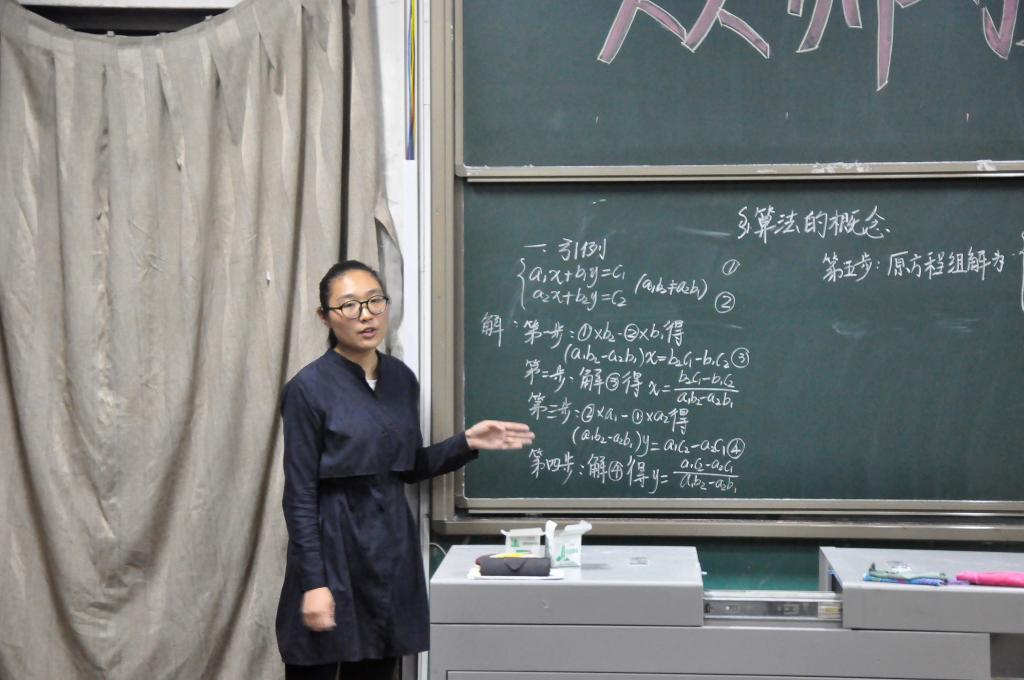 §算法的概念
一. 引例
a₁x+b₁y=c₁ ①
a₂x+b₂y=c₂ (a₁b₂≠a₂b₁) ②
解: 第一步:①×b₂-②×b₁得
(a₁b₂-a₂b₁)x=b₂c₁-b₁c₂③
第二步:解③得x=(b₂c₁-b₁c₂)/(a₁b₂-a₂b₁)
第三步:②×a₁-①×a₂得
(a₁b₂-a₂b₁)y=a₁c₂-a₂c₁④
第四步:解④得y=(a₁c₂-a₂c₁)/(a₁b₂-a₂b₁)
第五步:原方程组解为